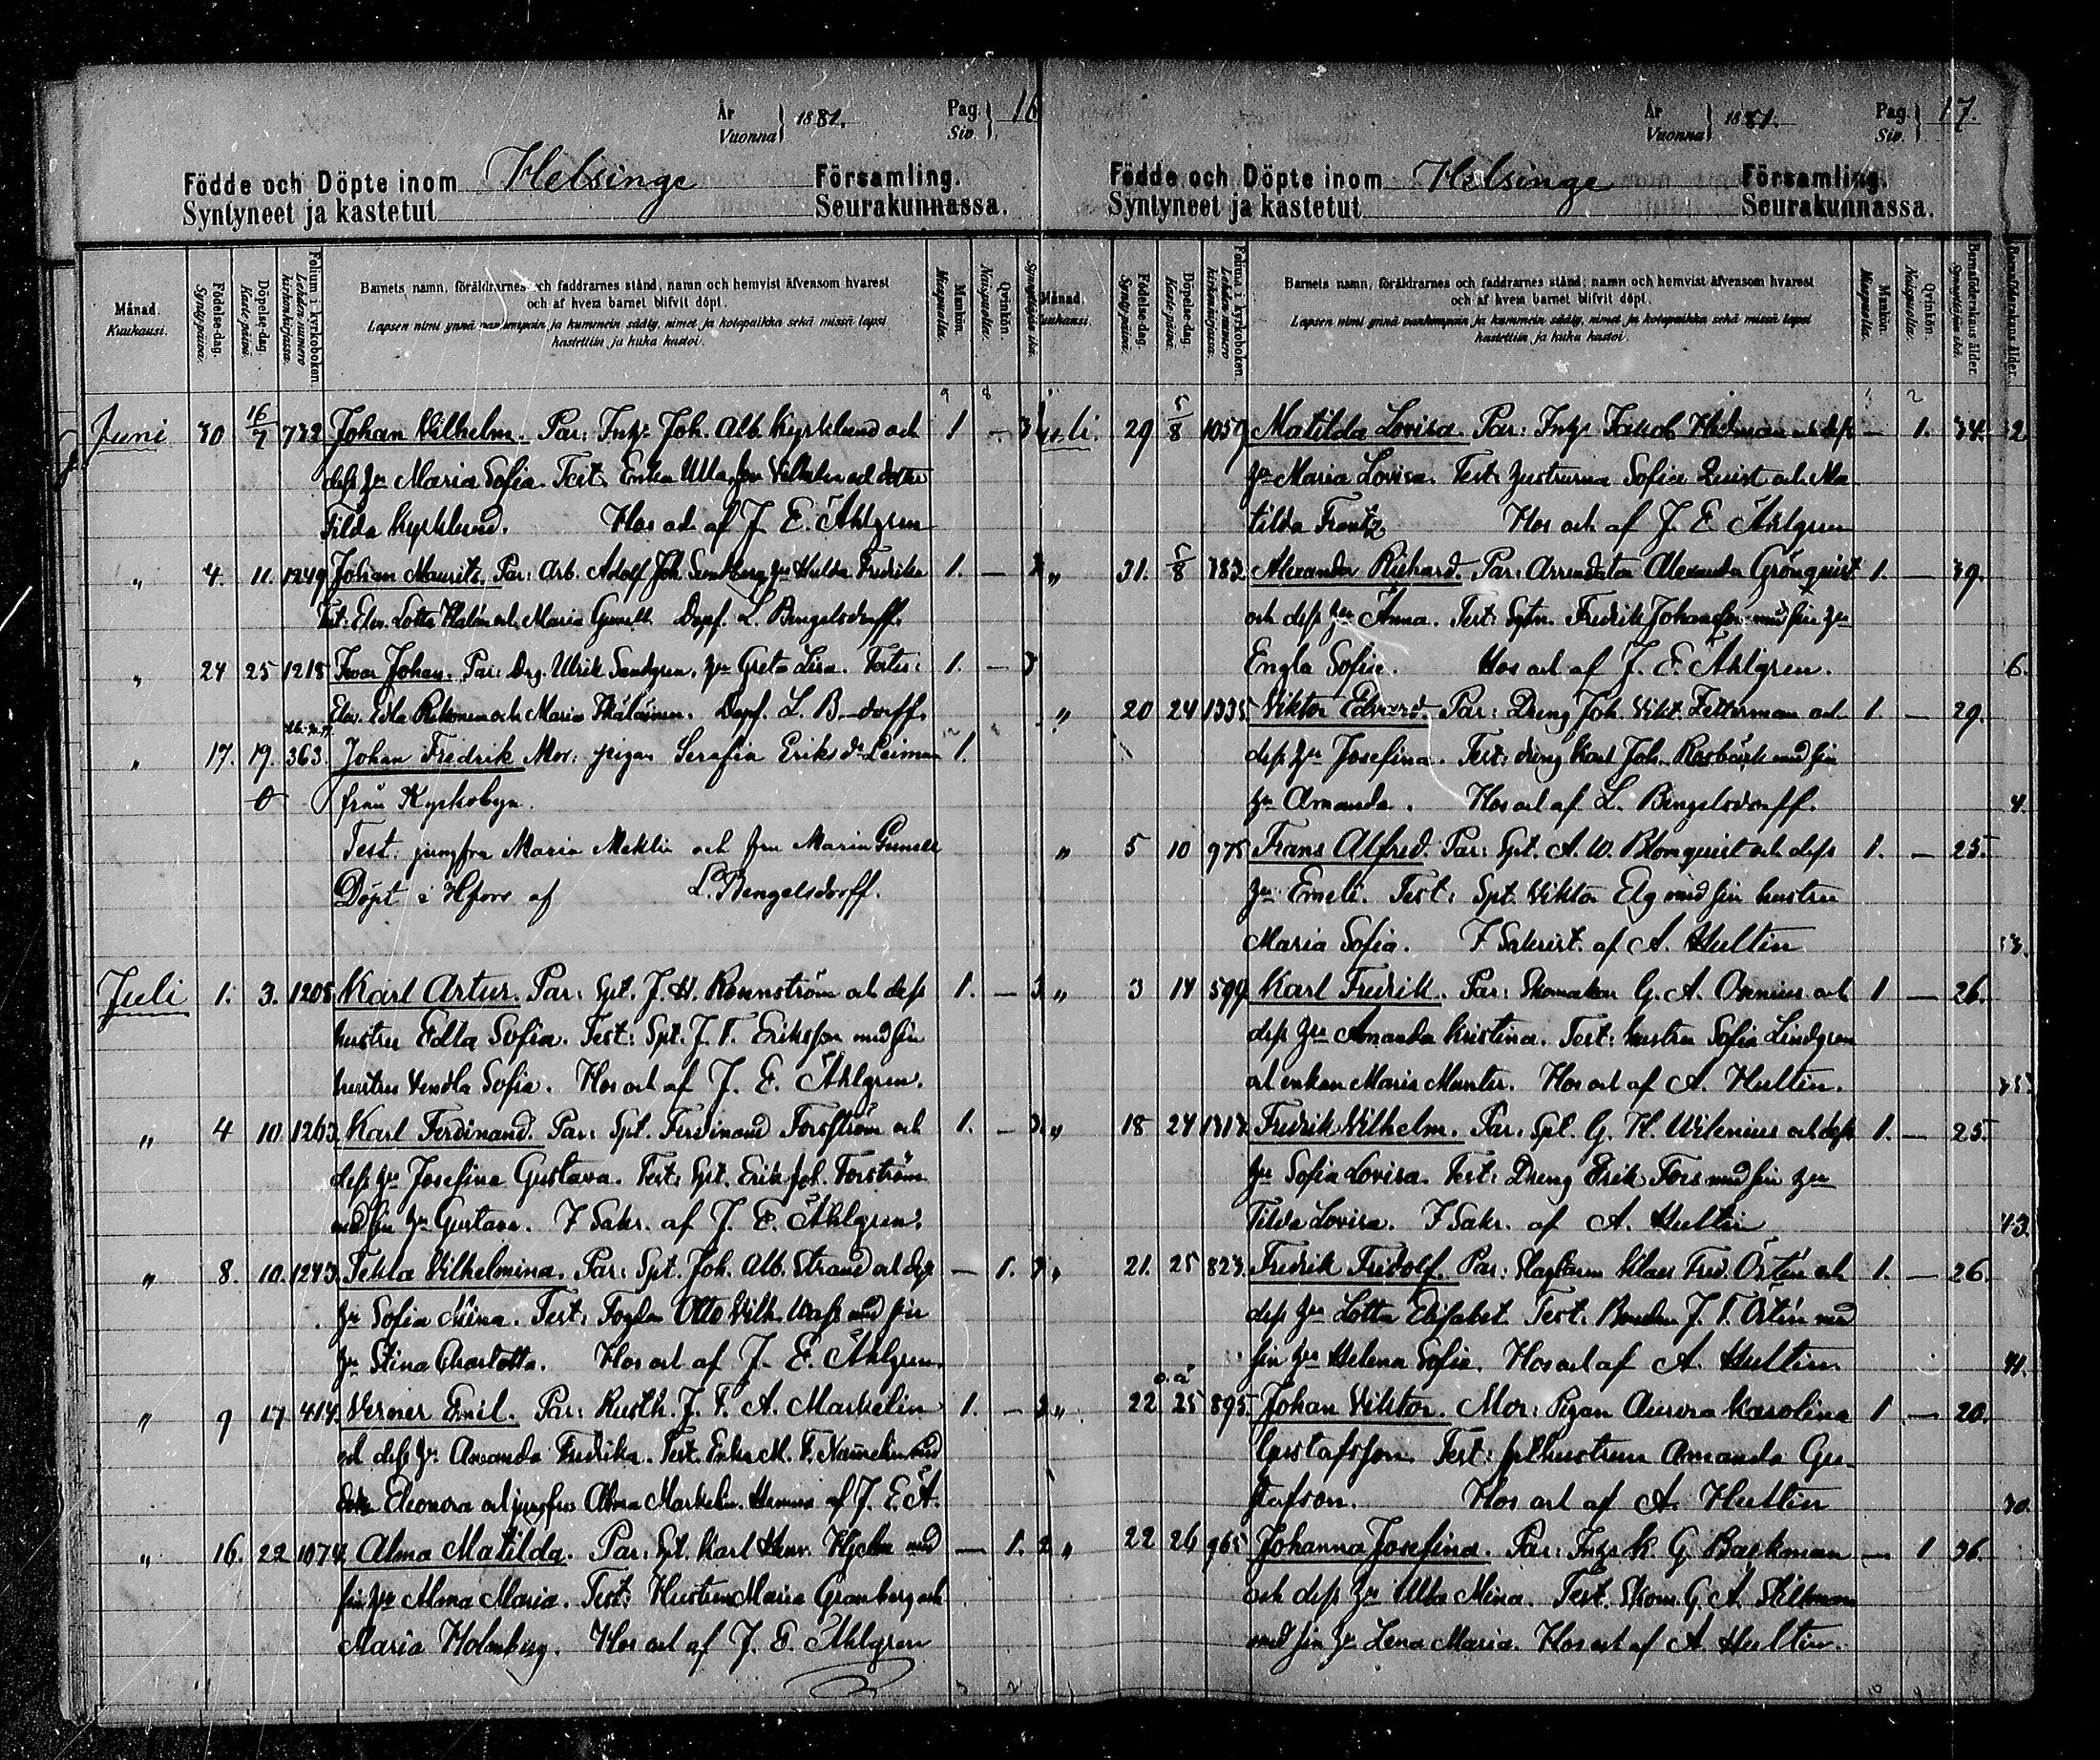 År Vuonna } 1881. Pag. Siv. } 16
Födde och Döpte inom Helsinge Församling.
Syntyneet ja kastetut Seurakunnassa.
Månad. Kuukausi.
Födelse-dag. Synty-päivä.
Döpelse-dag. Kaste-päivä.
Folium i kyrkoboken. Lehden numero kirkonkirjassa.
Barnets namn, föräldrarnes och faddrarnes stånd, namn och hemvist äfvensom hvarest
och af hvem barnet blifvit döpt.
Lapsen nimi ynnä vanhempain ja kummein sääty, nimet ja kotopaikka sekä missä lapsi
kastettiin ja kuka kastoi.
Mankön. Miespuolia.
Qvinkön. Naispuolia.
Juni 30 16/7 732 Johan Vilhelm. Par: Inhys Joh. Alb. Kyrklund och 1 -
dess hu Maria Sofia. Test. Enkan Ulla, son Vilhelm och dotter
Tilda Kyrklund. Hos och af J. E. Åhlgren
" 4. 11. 1249 Johan Mauritz. Par: Arb. Adolf Joh. Sundberg, hu Hulda Fredrika 1. -
Test: Elev. Lotta och Maria Gunell. Döpf. L. Bengelsdorff.
" 24 25 1218 Ivar Johan. Par: Drg. Ulrik Sandgren, hu Greta Lisa. Testes: 1. -
Elev. Edla och Maria Döpf. L. B-dorff.
" 17. 19. 363. Johan Fredrik Mor: pigan Serafia Eriksdr Leiman 1.
från Kyrkobyn.
Test: jungfru Maria Meklin och fru Maria Gunell
Döpt i Hfors af L. Bengelsdorff.
Juli 1. 3. 1208 Karl Artur. Par: Spt. J. H. Rönnström och dess 1. -
hustru Edla Sofia. Test: Spt. J. F. Eriksson med sin
hustru Vendla Sofia. Hos och af J. E. Åhlgren.
" 4 10. 1263. Karl Ferdinand. Par: Spt. Ferdinand Forsström och 1. -
dess hu Josefina Gustava. Test: Spt. Erik Joh. Forström
med sin hu Gustava. I Sakr. af J. E. Åhlgren.
" 8. 10. 1243. Tekla Vilhelmina. Par: Spt. Joh. Alb. Strand och dess - 1.
hu Sofia Mina. Test: Fogden Otto Vilh. med sin
hu Stina Charlotta. Hos och af J. E. Åhlgren.
" 9 17 414. Verner Emil. Par: Rusth. J. F. A. Markelin 1. -
och dess hu Amanda Fredrika. Test. M. F. med
Eleonora och jungfru Alma Markelin. Hemma af J. E. Å.
" 16. 22 1074 Alma Matilda. Par: Spt. Karl Henr. Hjelm med - 1.
sin hu Alma Maria. Test: Hustrun Maria Granberg och
Maria Holmberg. Hos och af J. E. Åhlgren
År Vuonna } 1881. Pag. Siv. } 17.
Födde och Döpte inom Helsinge Församling.
Syntyneet ja kastetut Seurakunnassa.
Månad. Kuukausi.
Födelse-dag. Synty-päivä.
Döpelse-dag. Kaste-päivä.
Folium i kyrkoboken. Lehden numero kirkonkirjassa.
Barnets namn, föräldrarnes och faddrarnes stånd, namn och hemvist äfvensom hvarest
och af hvem barnet blifvit döpt.
Lapsen nimi ynnä vanhempain ja kummein sääty, nimet ja kotopaikka sekä missä lapsi
kastettiin ja kuka kastoi.
Mankön. Miespuolia.
Qvinkön. Naispuolia.
Barnaföderskans ålder. Synnyttäjän ikä.
Juli. 29 5/8 1059 Matilda Lovisa. Par: Inhys Jakob och dess - 1. 34.
hu Maria Lovisa. Test: hustrurna Sofia Quist och Ma
tilda Frantz. Hos och af J. E. Åhlgren
" 31. 5/8 383. Alexander Richard. Par: Arrendator Alexander Grönquist 1. - 39.
och dess hu Anna. Test: Sytn. Fredrik Johansson med sin hu
Engla Sofia. Hos och af J. E. Åhlgren.
" 20 24 1335 Viktor Edvard. Par: Dreng Joh. Vikt. Zetterman och 1. - 29.
dess hu Josefina. Test: dreng Karl Joh. Rosbäck med sin
hu Amanda. Hos och af L. Bengelsdorff.
" 5 10 975 Frans Alfred. Par: Spt. A. W. Blomquist och dess 1. - 25.
hu Emeli. Test: Spt. Viktor Elg med sin hustru
Maria Sofia. I Sakrist. af A. Hultin
" 3 14 594 Karl Fredrik. Par: Skomakar G. A. Osenius och 1 - 26.
dess hu Amanda Kristina. Test: hustru Sofia Lindgren
och enkan Maria Munter. Hos och af A. Hultin.
" 18 24 1313. Fredrik Vilhelm. Par: Spt. G. H. Wilenius och dess 1. - 25.
hu Sofia Lovisa. Test: Dreng Erik Fors med sin hu
Tilda Lovisa. I Sakr. af A. Hultin
" 21. 25 823. Fredrik Fridolf. Par: Slagtaren Klaes Fred. Östén och 1. - 26.
dess hu Lotta Elisabet. Test. Bonden J. F. Östén med
sin hu Helena Sofia. Hos och af A. Hultin.
" 22 o.ä. 25 895. Johan Viktor. Mor: Pigan Aurora Karolina 1 - 20.
Gustafsson. Test: spthustrun Amanda Gu-
stafson. Hos och af A. Hultin
" 22 26 965 Johanna Josefina. Par: Inhys K. G. Backman - 1 36.
och dess hu Ulla Mina. Test. Skom. G. A. Stillman
med sin hu Lena Maria. Hos och af A. Hultin.